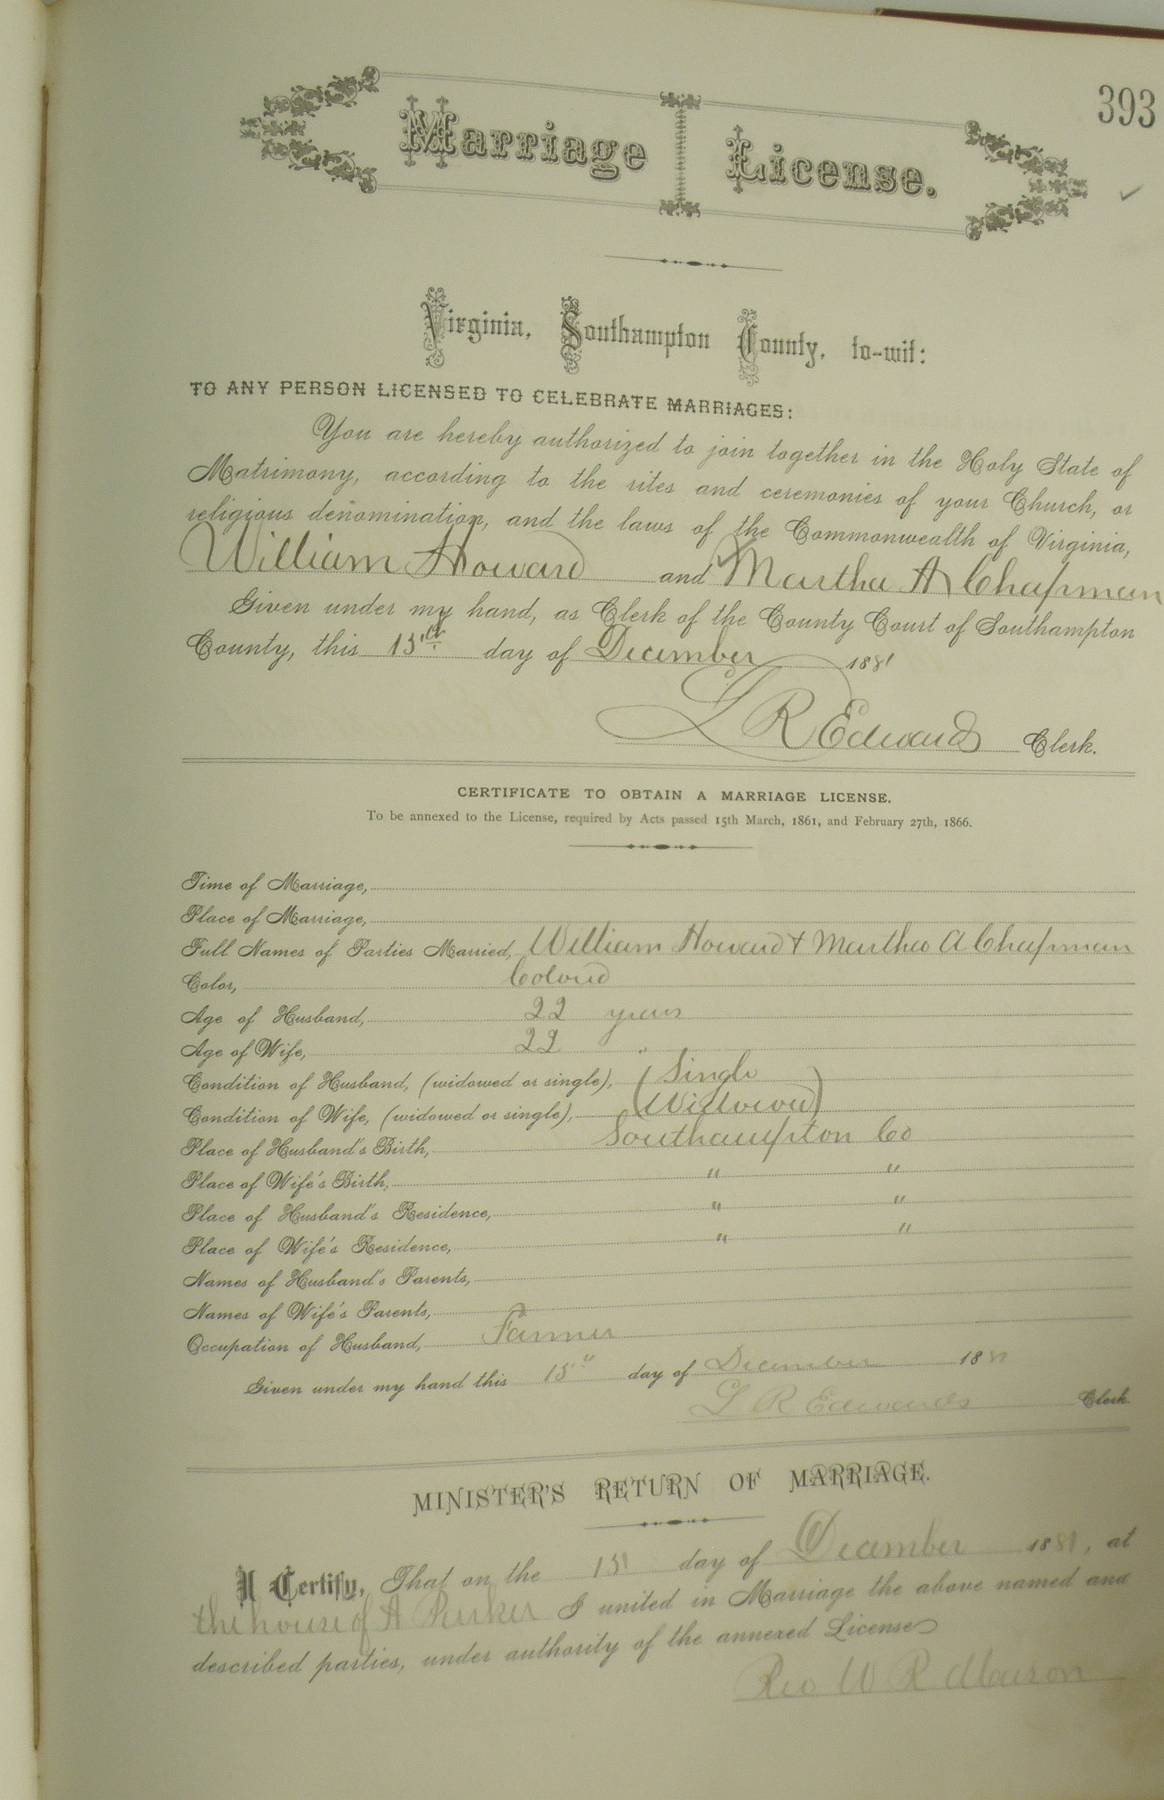 393
Marriage License.
Virginia, Southampton County, to-wit:
TO ANY PERSON LICENSED TO CELEBRATE MARRIAGES:
You are hereby authorized to join together in the Holy State of
Matrimony, according to the rites and ceremonies of your Church, or
religious denomination, and the laws of the Commonwealth of Virginia,
William Howard and Martha A Chapman
Given under my hand, as Clerk of the County Court of Southampton
County, this 15th day of December 1881
L R Edwards Clerk.
CERTIFICATE TO OBTAIN A MARRIAGE LICENSE.
To be annexed to the License, required by Acts passed 15th March, 1861, and February 27th, 1866.
Time of Marriage,
Place of Marriage,
Full Names of Parties Married, William Howard & Martha A Chapman
Color, Colored
Age of Husband, 22 years
Age of Wife, 22 "
Condition of Husband, (widowed or single), (Single
Condition of Wife, (widowed or single), (Widowed)
Place of Husband's Birth, Southampton Co
Place of Wife's Birth, " "
Place of Husband's Residence, " "
Place of Wife's Residence, " "
Names of Husband's Parents,
Names of Wife's Parents,
Occupation of Husband, Farmer
Given under my hand this 15" day of December 1881
L R Edwards Clerk.
MINISTER'S RETURN OF MARRIAGE.
I Certify, That on the 15 day of December 1881, at
the house of A Parker I united in Marriage the above named and
described parties, under authority of the annexed License
Rev W R Mason